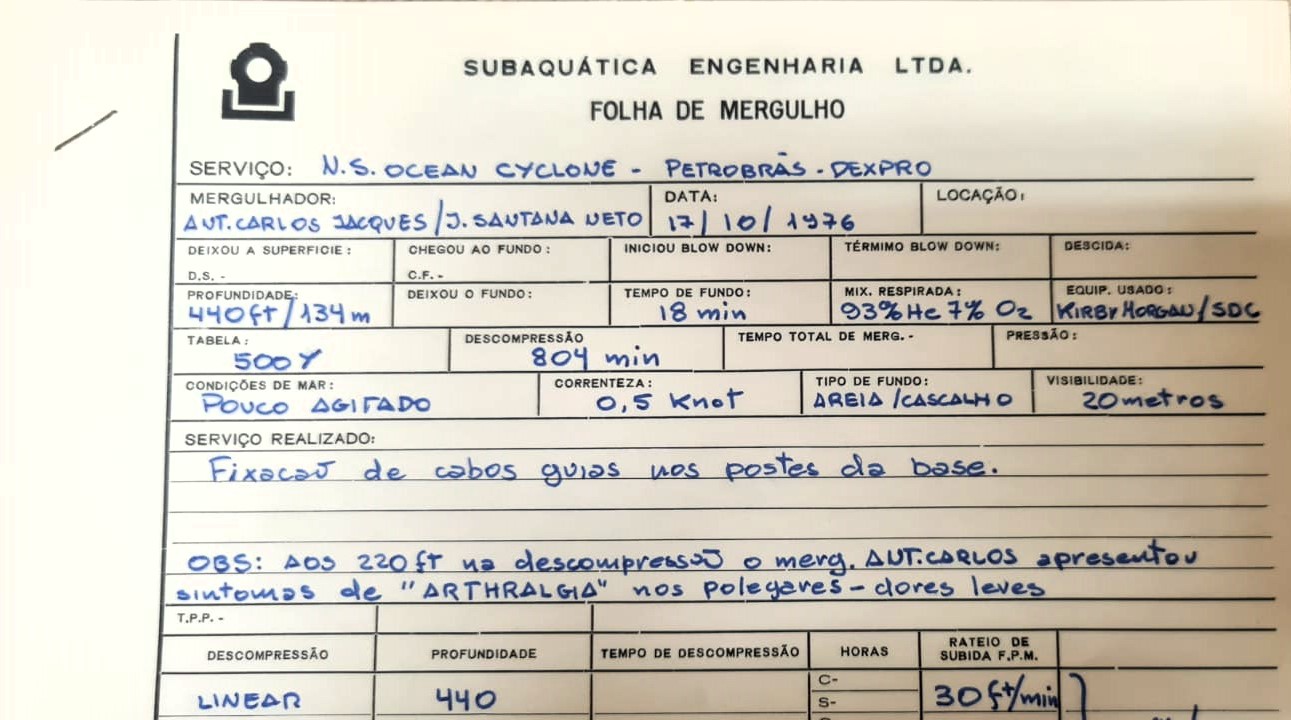 SUBAQUÁTICA ENGENHARIA LTDA.
FOLHA DE MERGULHO
SERVIÇO: N.S. OCEAN CYCLONE - PETROBRÁS - DEXPRO
MERGULHADOR: DATA: LOCAÇÃO:
ANT. CARLOS JACQUES / J. SANTANA NETO 17/10/1976
DEIXOU A SUPERFICIE: CHEGOU AO FUNDO: INICIOU BLOW DOWN: TÉRMIMO BLOW DOWN: DESCIDA:
D.S. - C.F. -
PROFUNDIDADE: DEIXOU O FUNDO: TEMPO DE FUNDO: MIX. RESPIRADA: EQUIP. USADO:
440ft/134m 18 min 93% He 7% O2 KIRBY MORGAN/SDC
TABELA: DESCOMPRESSÃO TEMPO TOTAL DE MERG. - PRESSÃO:
500Y 804 min
CONDIÇÕES DE MAR: CORRENTEZA: TIPO DE FUNDO: VISIBILIDADE:
POUCO AGITADO 0,5 Knot AREIA/CASCALHO 20 metros
SERVIÇO REALIZADO:
Fixacaõ de cabos guias nos postes da base.
OBS: AOS 220 ft na descompressaõ o merg. ANT. CARLOS apresentou
sintomas de "ARTHRALGIA" nos polegares - dores leves
T.P.P. -
DESCOMPRESSÃO PROFUNDIDADE TEMPO DE DESCOMPRESSÃO HORAS RATEIO DE
SUBIDA F.P.M.
C-
LINEAR 440 30 ft/min
S-